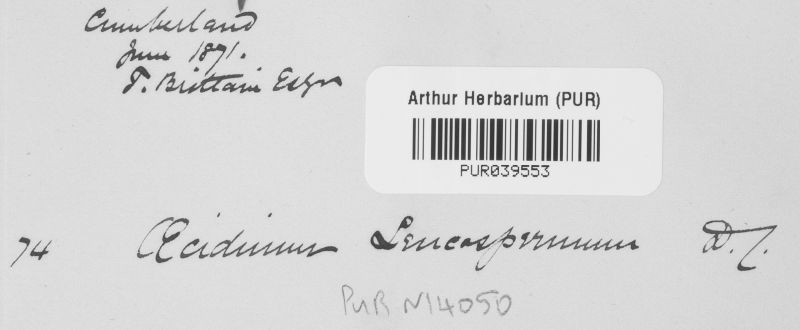 Cumberland
June 1871.
T. Brittain Esqr
Arthur Herbarium (PUR)
PUR039553
74 Œcidium Leucospermum D.C.
PUR N14050